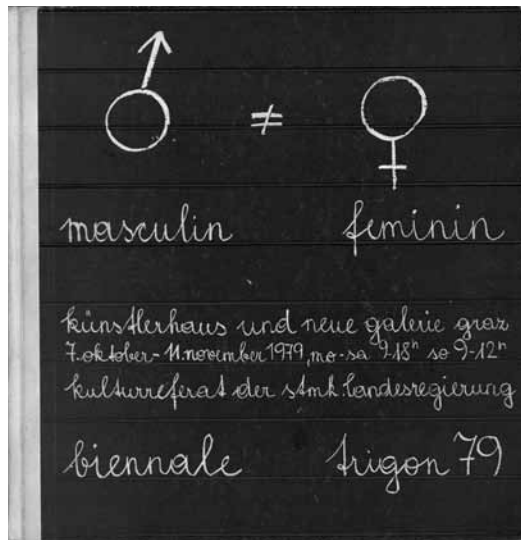 ♂ ≠ ♀
masculin feminin
künstlerhaus und neue galerie graz
7. oktober - 11. november 1979, mo-sa 9-18ʰ so 9-12ʰ
kulturreferat der stmk. landesregierung
biennale trigon 79